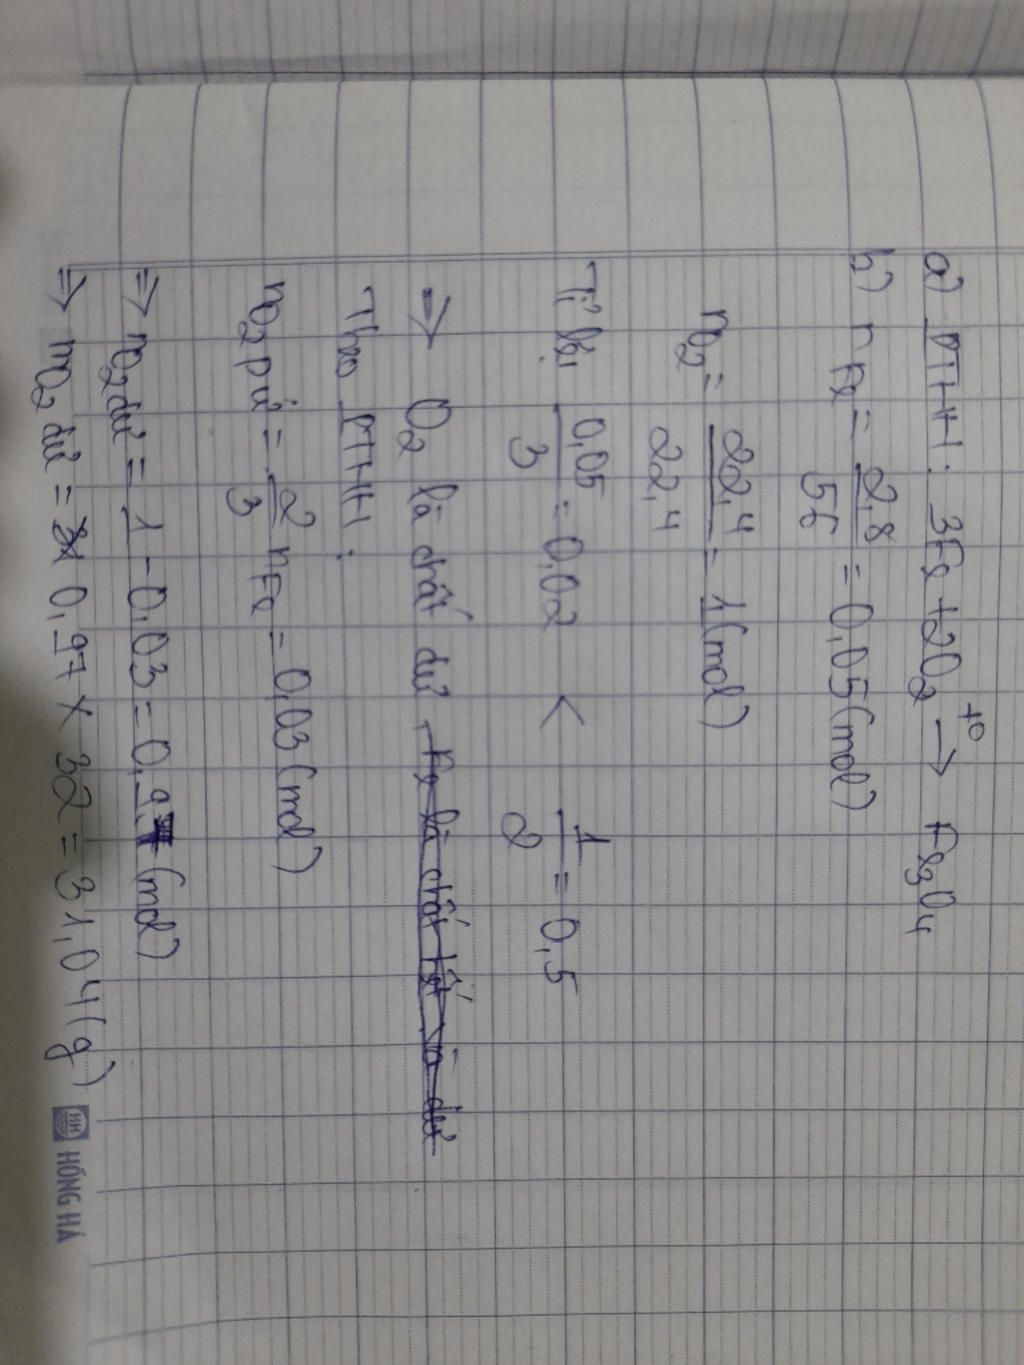 a) PTHH: 3Fe + 2O₂ →(t°) Fe₃O₄
b) nFe = 2,8/56 = 0,05 (mol)
nO₂ = 22,4/22,4 = 1 (mol)
Tỉ lệ: 0,05/3 = 0,02 < 1/2 = 0,5
=> O₂ là chất dư, Fe là chất hết và dư
Theo PTHH:
nO₂ pứ = 2/3 nFe = 0,03 (mol)
=> nO₂ dư = 1 - 0,03 = 0,97 (mol)
=> mO₂ dư = 0,97 x 32 = 31,04 (g)
HH HỒNG HÀ